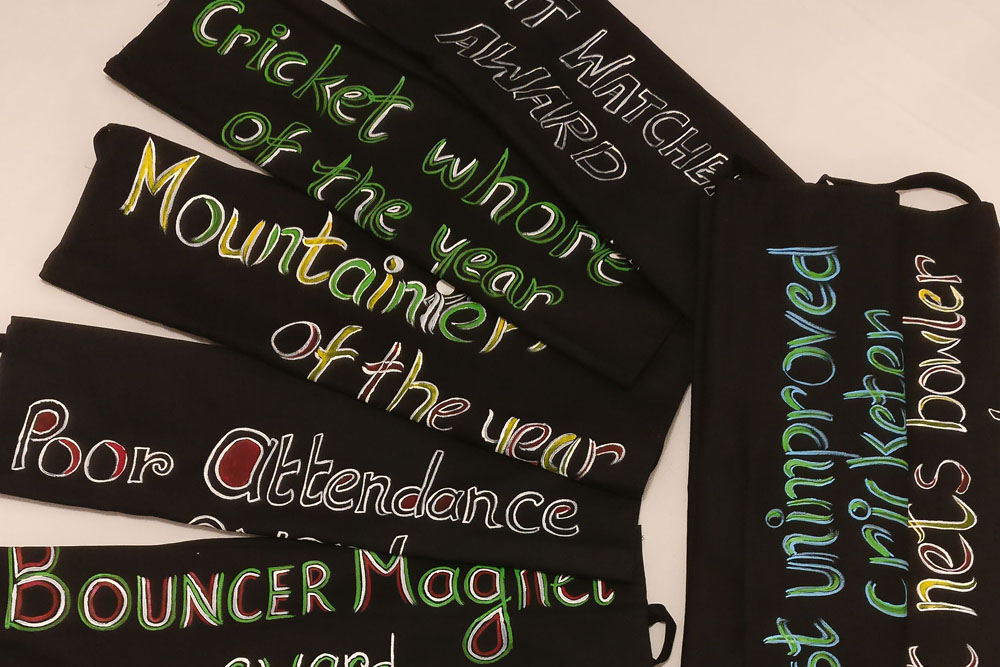 WATCHER
AWARD
Cricket whore
of the year
Mountainier
of the year
Poor Attendance
BOUNCER Magnet
award
unimproved
cricketer
nets bowler